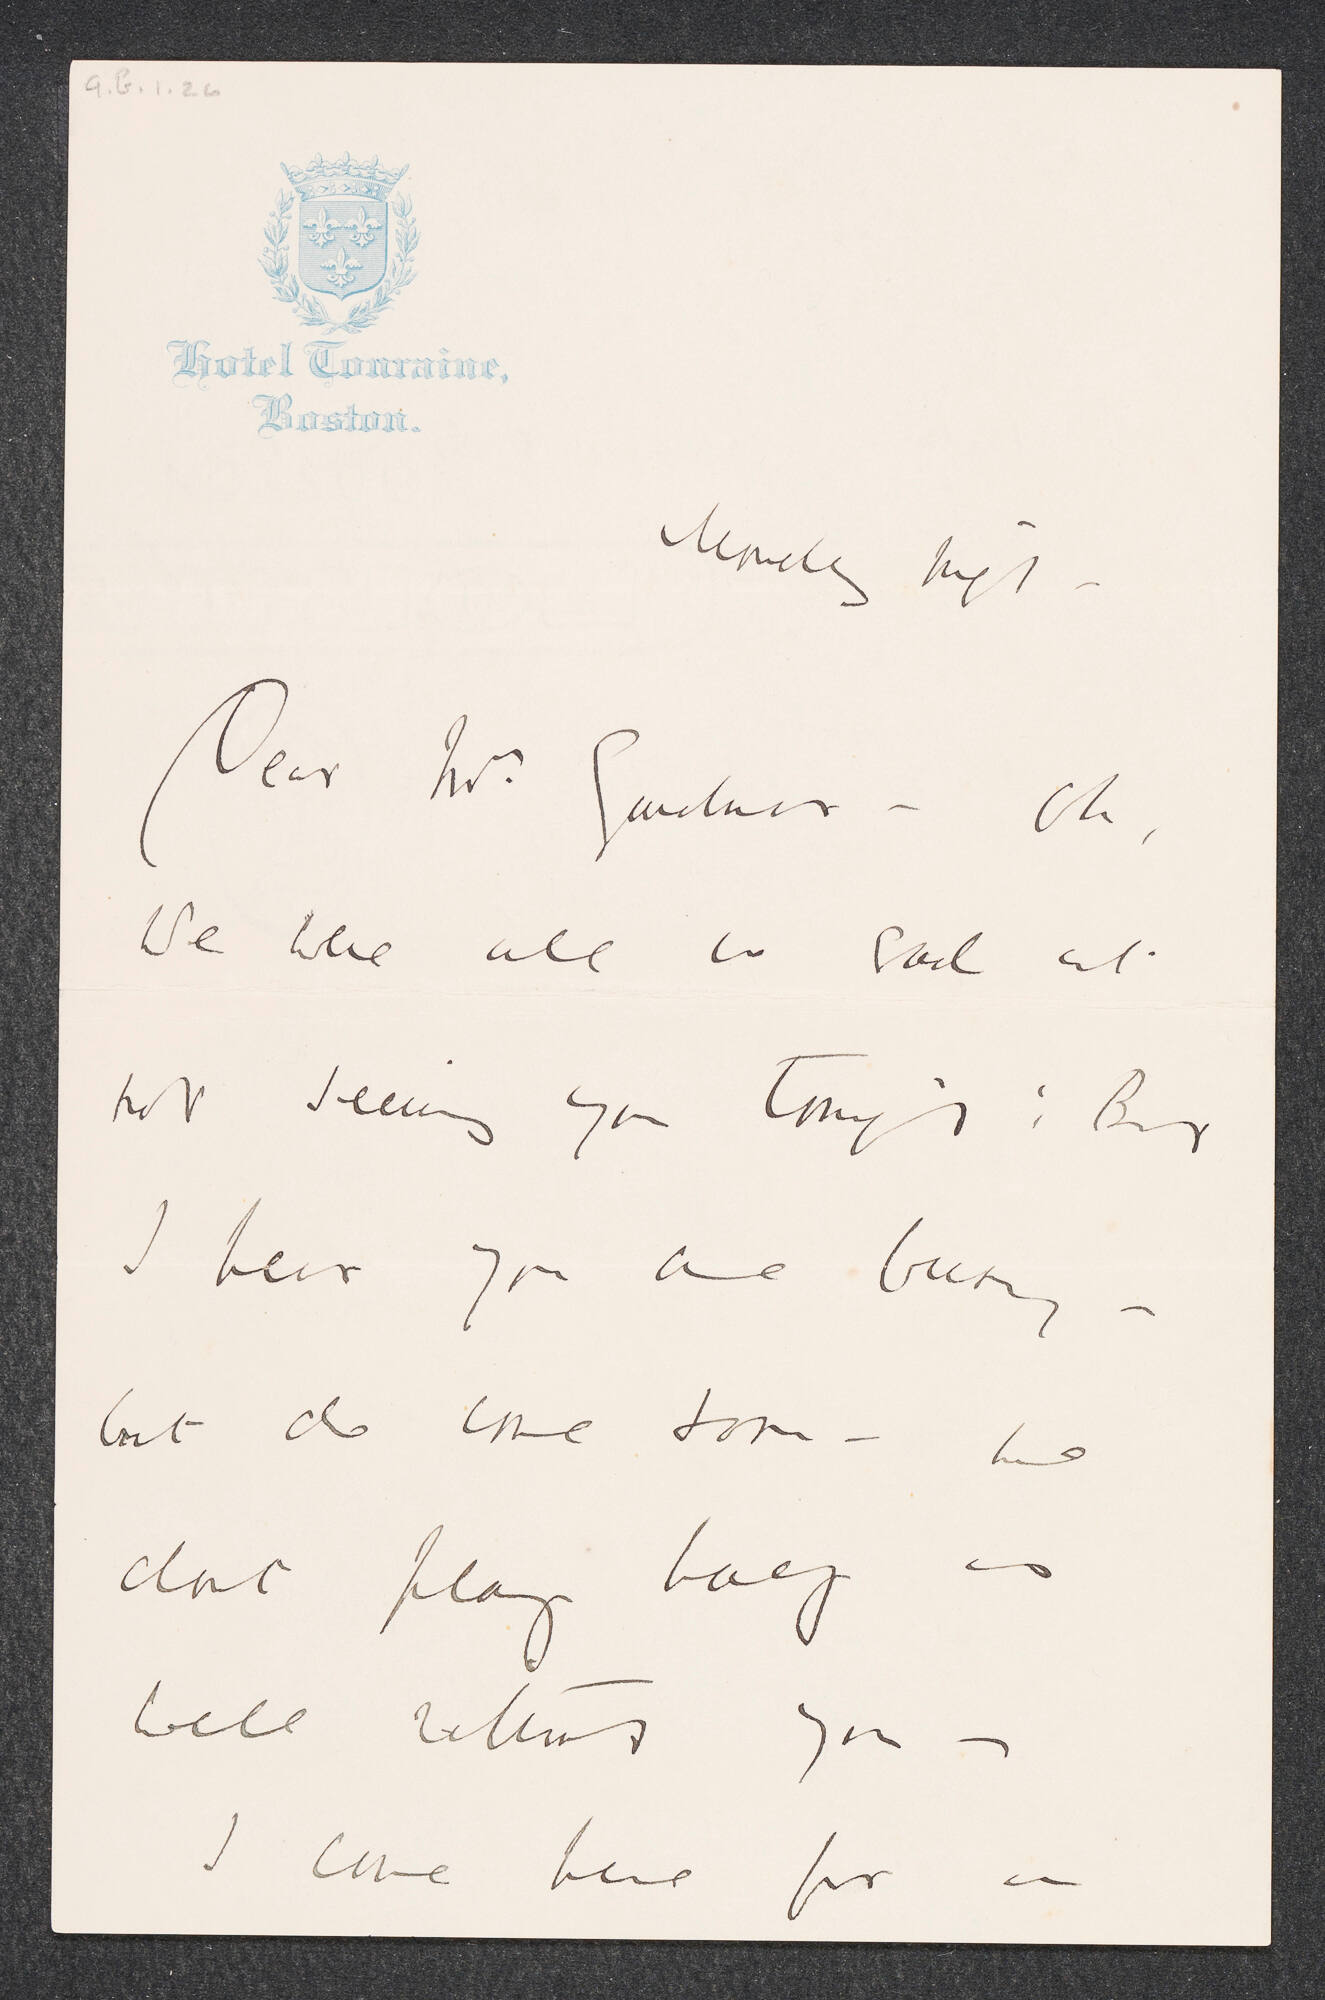 a.B.1.26
Hotel Touraine,
Boston.
Monday night -
Dear Mrs. Gardner - Oh,
We were all so sad at
not seeing you tonight: But
I hear you are busy -
but do come soon - we
dont play half as
well without you -
I come here for a